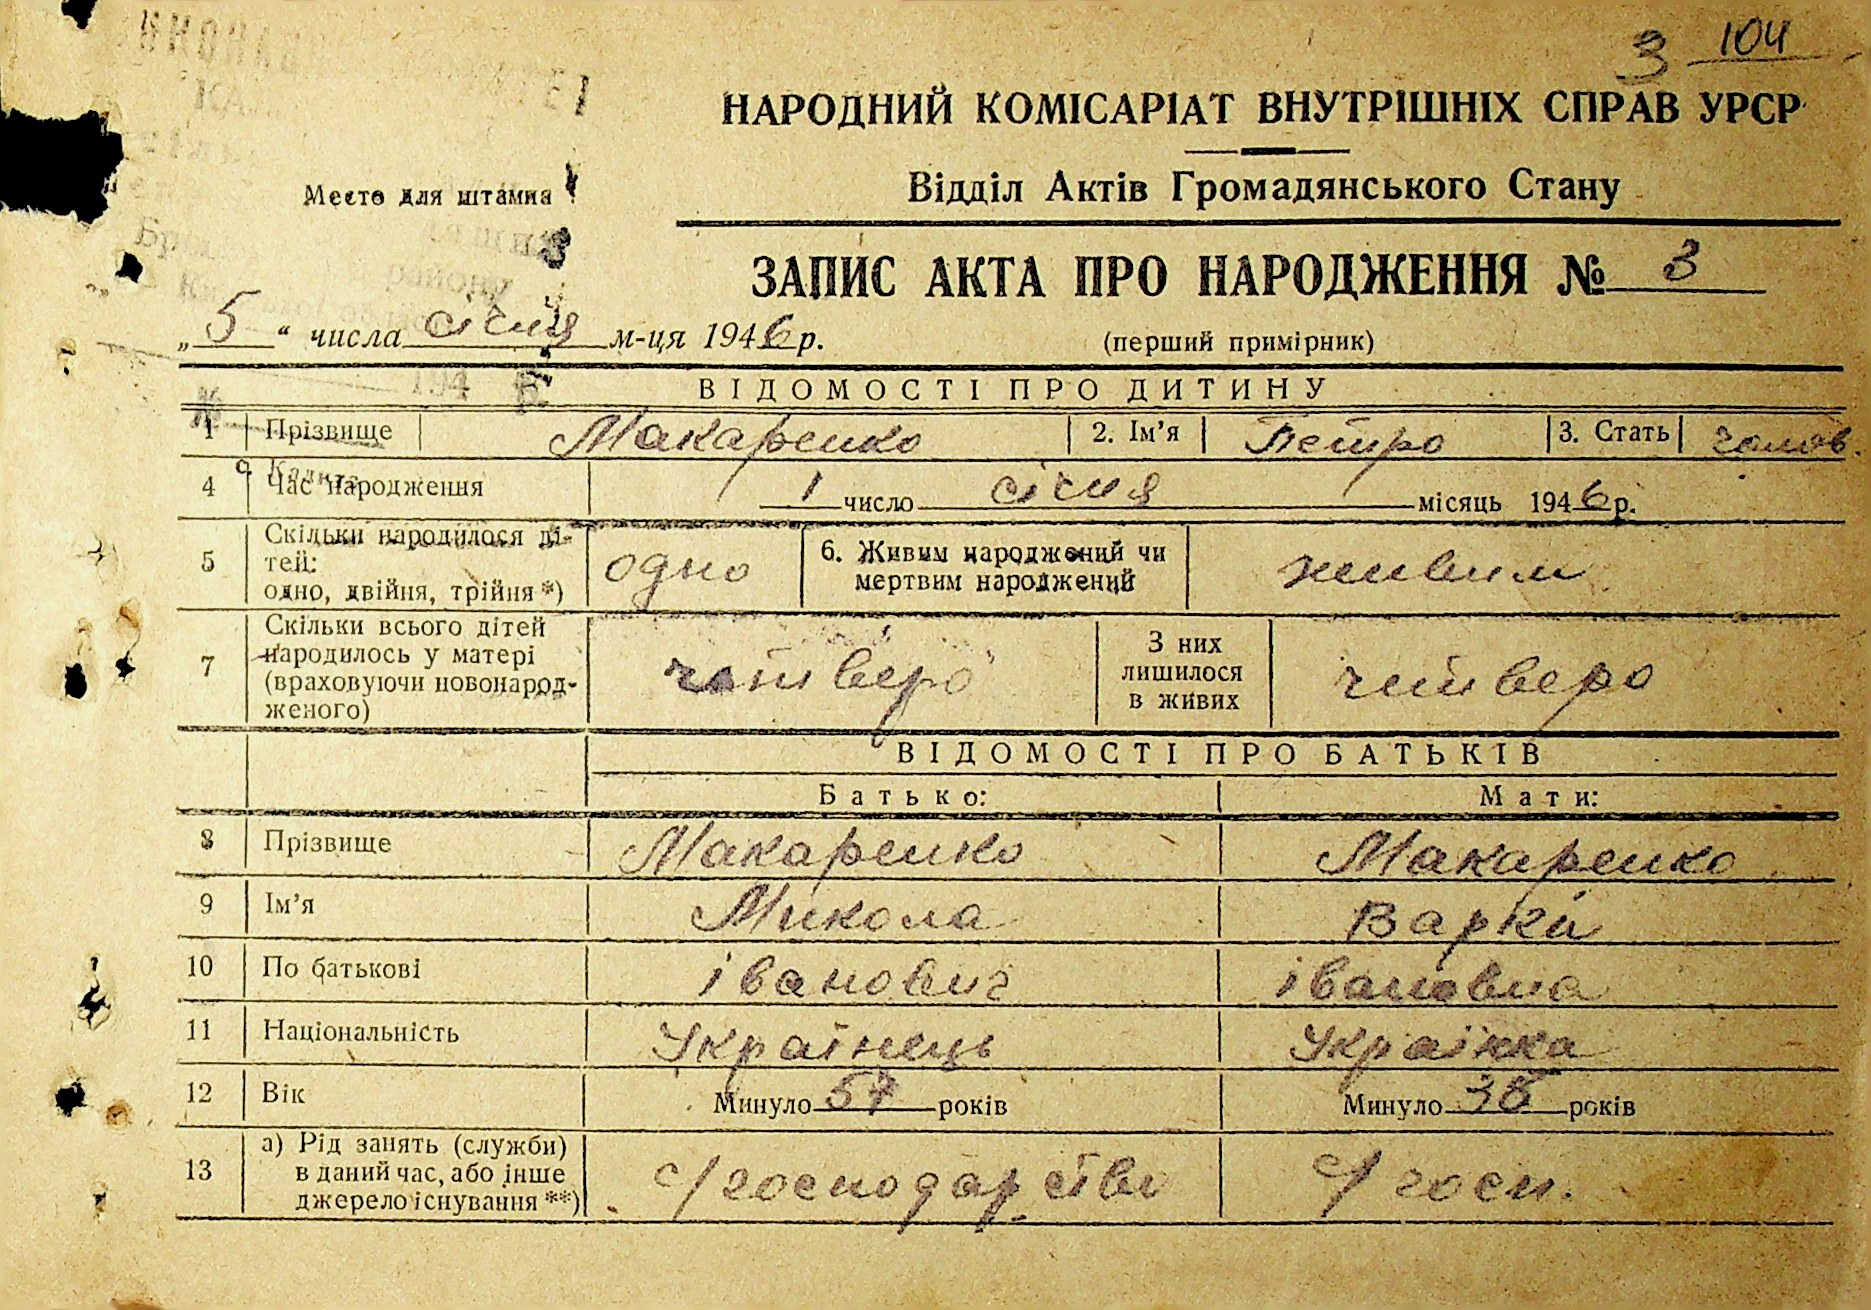 3 104
НАРОДНИЙ КОМІСАРІАТ ВНУТРІШНІХ СПРАВ УРСР
Место для штампа
Відділ Актів Громадянського Стану
ЗАПИС АКТА ПРО НАРОДЖЕННЯ № 3
„5“ числа січня м-ця 1946 р.
(перший примірник)
ВІДОМОСТІ ПРО ДИТИНУ
1 Прізвище Макаренко 2. Ім’я Петро 3. Стать чолов.
4 Час народження 1 число січня місяць 1946 р.
5 Скільки народилося ді-
тей:
одно, двійня, трійня *) одно 6. Живим народжений чи
мертвим народжений живим
7 Скільки всього дітей
народилось у матері
(враховуючи новонарод-
женого) четверо З них
лишилося
в живих четверо
ВІДОМОСТІ ПРО БАТЬКІВ
Батько: Мати:
8 Прізвище Макаренко Макаренко
9 Ім’я Микола Варка
10 По батькові іванович івановна
11 Національність Українець Українка
12 Вік Минуло 57 років Минуло 38 років
13 а) Рід занять (служби)
в даний час, або інше
джерело існування **) с/господарство с/госп.